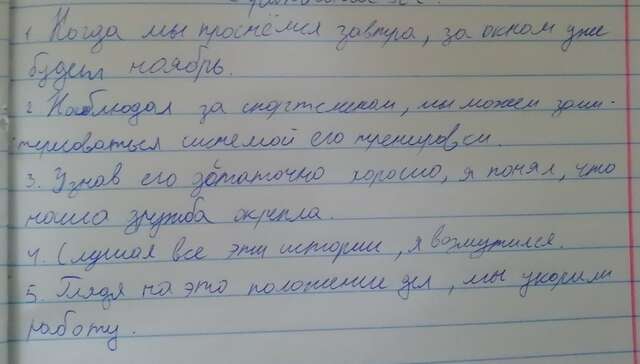 1. Когда мы проснёмся завтра, за окном уже
будет ноябрь.
2. Наблюдая за спортсменом, мы можем заин-
тересоваться системой его тренировки.
3. Узнав его достаточно хорошо, я понял, что
наша дружба окрепла.
4. Слушая все эти истории, я возмутился.
5. Глядя на это положение дел, мы ускорили
работу.